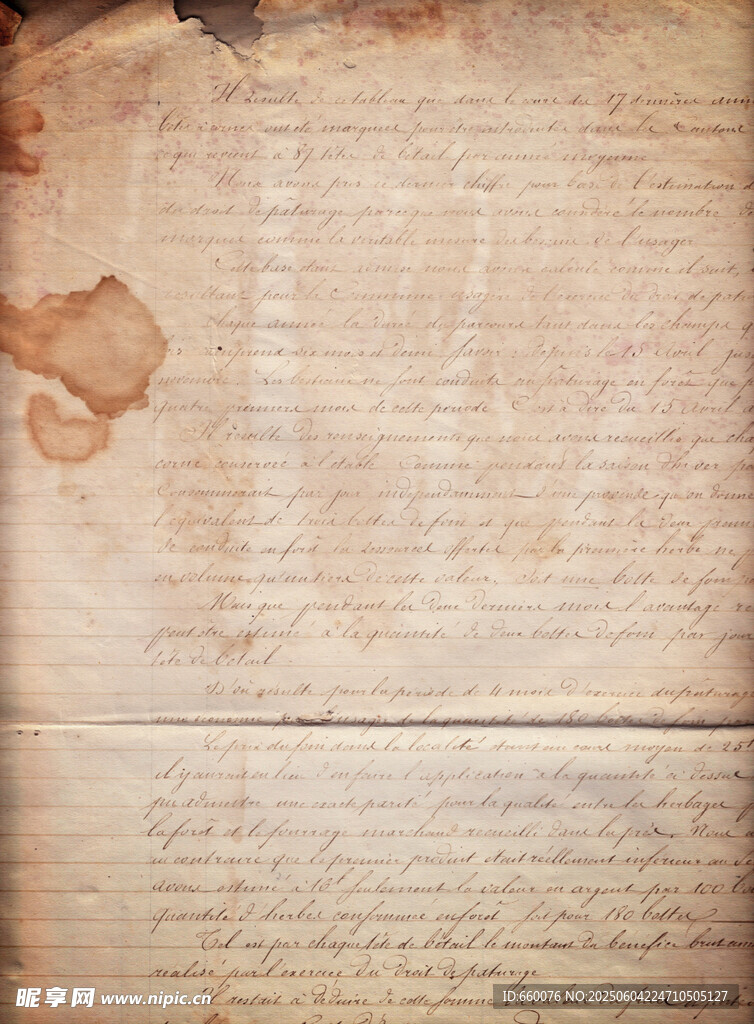 Il résulte de ce tableau que dans le cours des 17 dernières ann
bêtes à cornes ont été marquées pour être introduites dans le Cantone
qui revient à 87 têtes de bétail par année moyenne
Nous avons pris ce dernier chiffre pour base de l'estimation d
du droit de pâturage parceque nous avons considéré le nombre de
marqué comme la véritable mesure du besoin de l'usager
Cette base étant admise nous avons calculé comme il suit,
résultant pour la Commune usagère de l'exercice du droit de patu
Chaque année la durée du parcours tant dans les champs q
comprend six mois et demi savoir depuis le 15 Avril jus
novembre. Les bestiaux ne sont conduits au pâturage en forêt que
quatre premiers mois de cette période C'est à dire du 15 Avril
Il résulte des renseignements que nous avons recueillis que cha
corne conservée à l'étable Comme pendant la saison d'hiver
Consommerait par jour indépendamment d'une provende qu'on donne
l'équivalent de trois bottes de foin et que pendant les deux premie
de conduite en forêt la ressource offerte par la première herbe ne
en volume qu'un tiers de cette valeur, soit une botte de foin
Mais que pendant les deux derniers mois l'avantage re
peut être estimé à la quantité de deux bottes de foin par jour
tête de bétail
D'où résulte pour la période de 4 mois d'exercice du pâturage
une économie pour l'usager de la quantité de 180 bottes de foin
Le prix du foin dans la localité étant au cours moyen de 25f
il y aurait eu lieu d'en faire l'application à la quantité ci dessus
qu'admettre une exacte parité pour la qualité entre les herbages
la forêt et le fourrage marchand recueilli dans les prés. Nous a
au contraire que le premier produit était réellement inférieur au
avons estimé à 16f seulement la valeur en argent par 100 bo
quantité d'herbes consommée en forêt soit pour 180 bottes
Tel est par chaque tête de bétail le montant du bénéfice brut ann
réalisé par l'exercice du droit de pâturage
Il restait à déduire de cette somme
昵享网 www.nipic.cn
ID:660076 NO:20250604224710505127